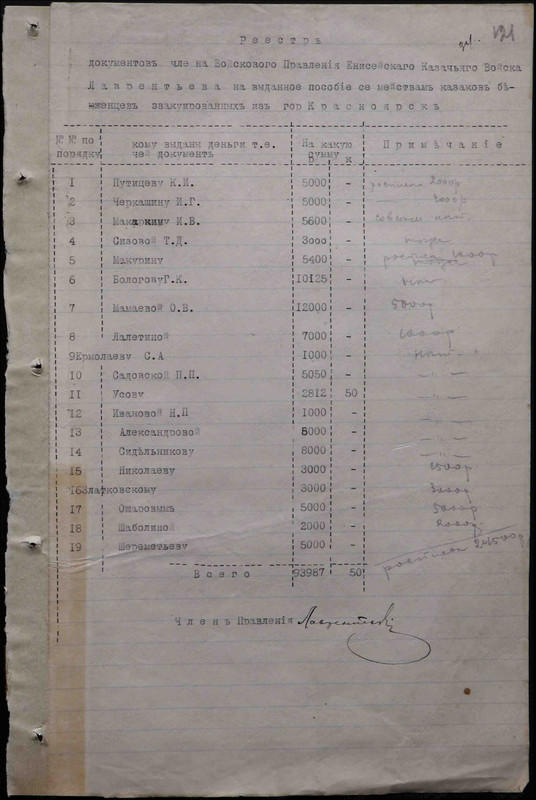 121
Реестръ
документовъ чле на Войскового Правленія Енисейскаго Казачьяго Войска
Лаврентьева на выданное пособіе се мействамъ казаковъ бѣ-
женцевъ эвакуированныхъ изъ гор Красноярскъ
№ № по порядку кому выданы деньги т.е. чей документъ На какую сумму Р к Примѣчаніе
1 Путинцеву К.И. 5000 - 2000р
2 Черкашину И.Г. 5000 - 3000р
3 Макаркину И.В. 5600 - совсем нет
4 Сизовой Т.Д. 3000 - тоже
5 Макурину 5400 -
6 БологовуГ.К. 10125 - нет
7 Мамаевой О.В. 12000 - 5000р
8 Лалетиной 7000 -
9 Ермолаеву С.А 1000 - нет
10 Садовской П.П. 5050 - -"-
11 Усову 2812 50 -"-
12 Ивановой Н.П 1000 - -"-
13 Александровой 5000 - -"-
14 Сидѣльникову 8000 - -"-
15 Николаеву 3000 - 1500р
16 Златковскому 3000 - 3000р
17 Ошаровымъ 5000 - 5000р
18 Шаболиной 2000 - 2000р
19 Шереметьеву 5000 -
Всего 93987 50
Членъ Правленія Лаврентьевъ